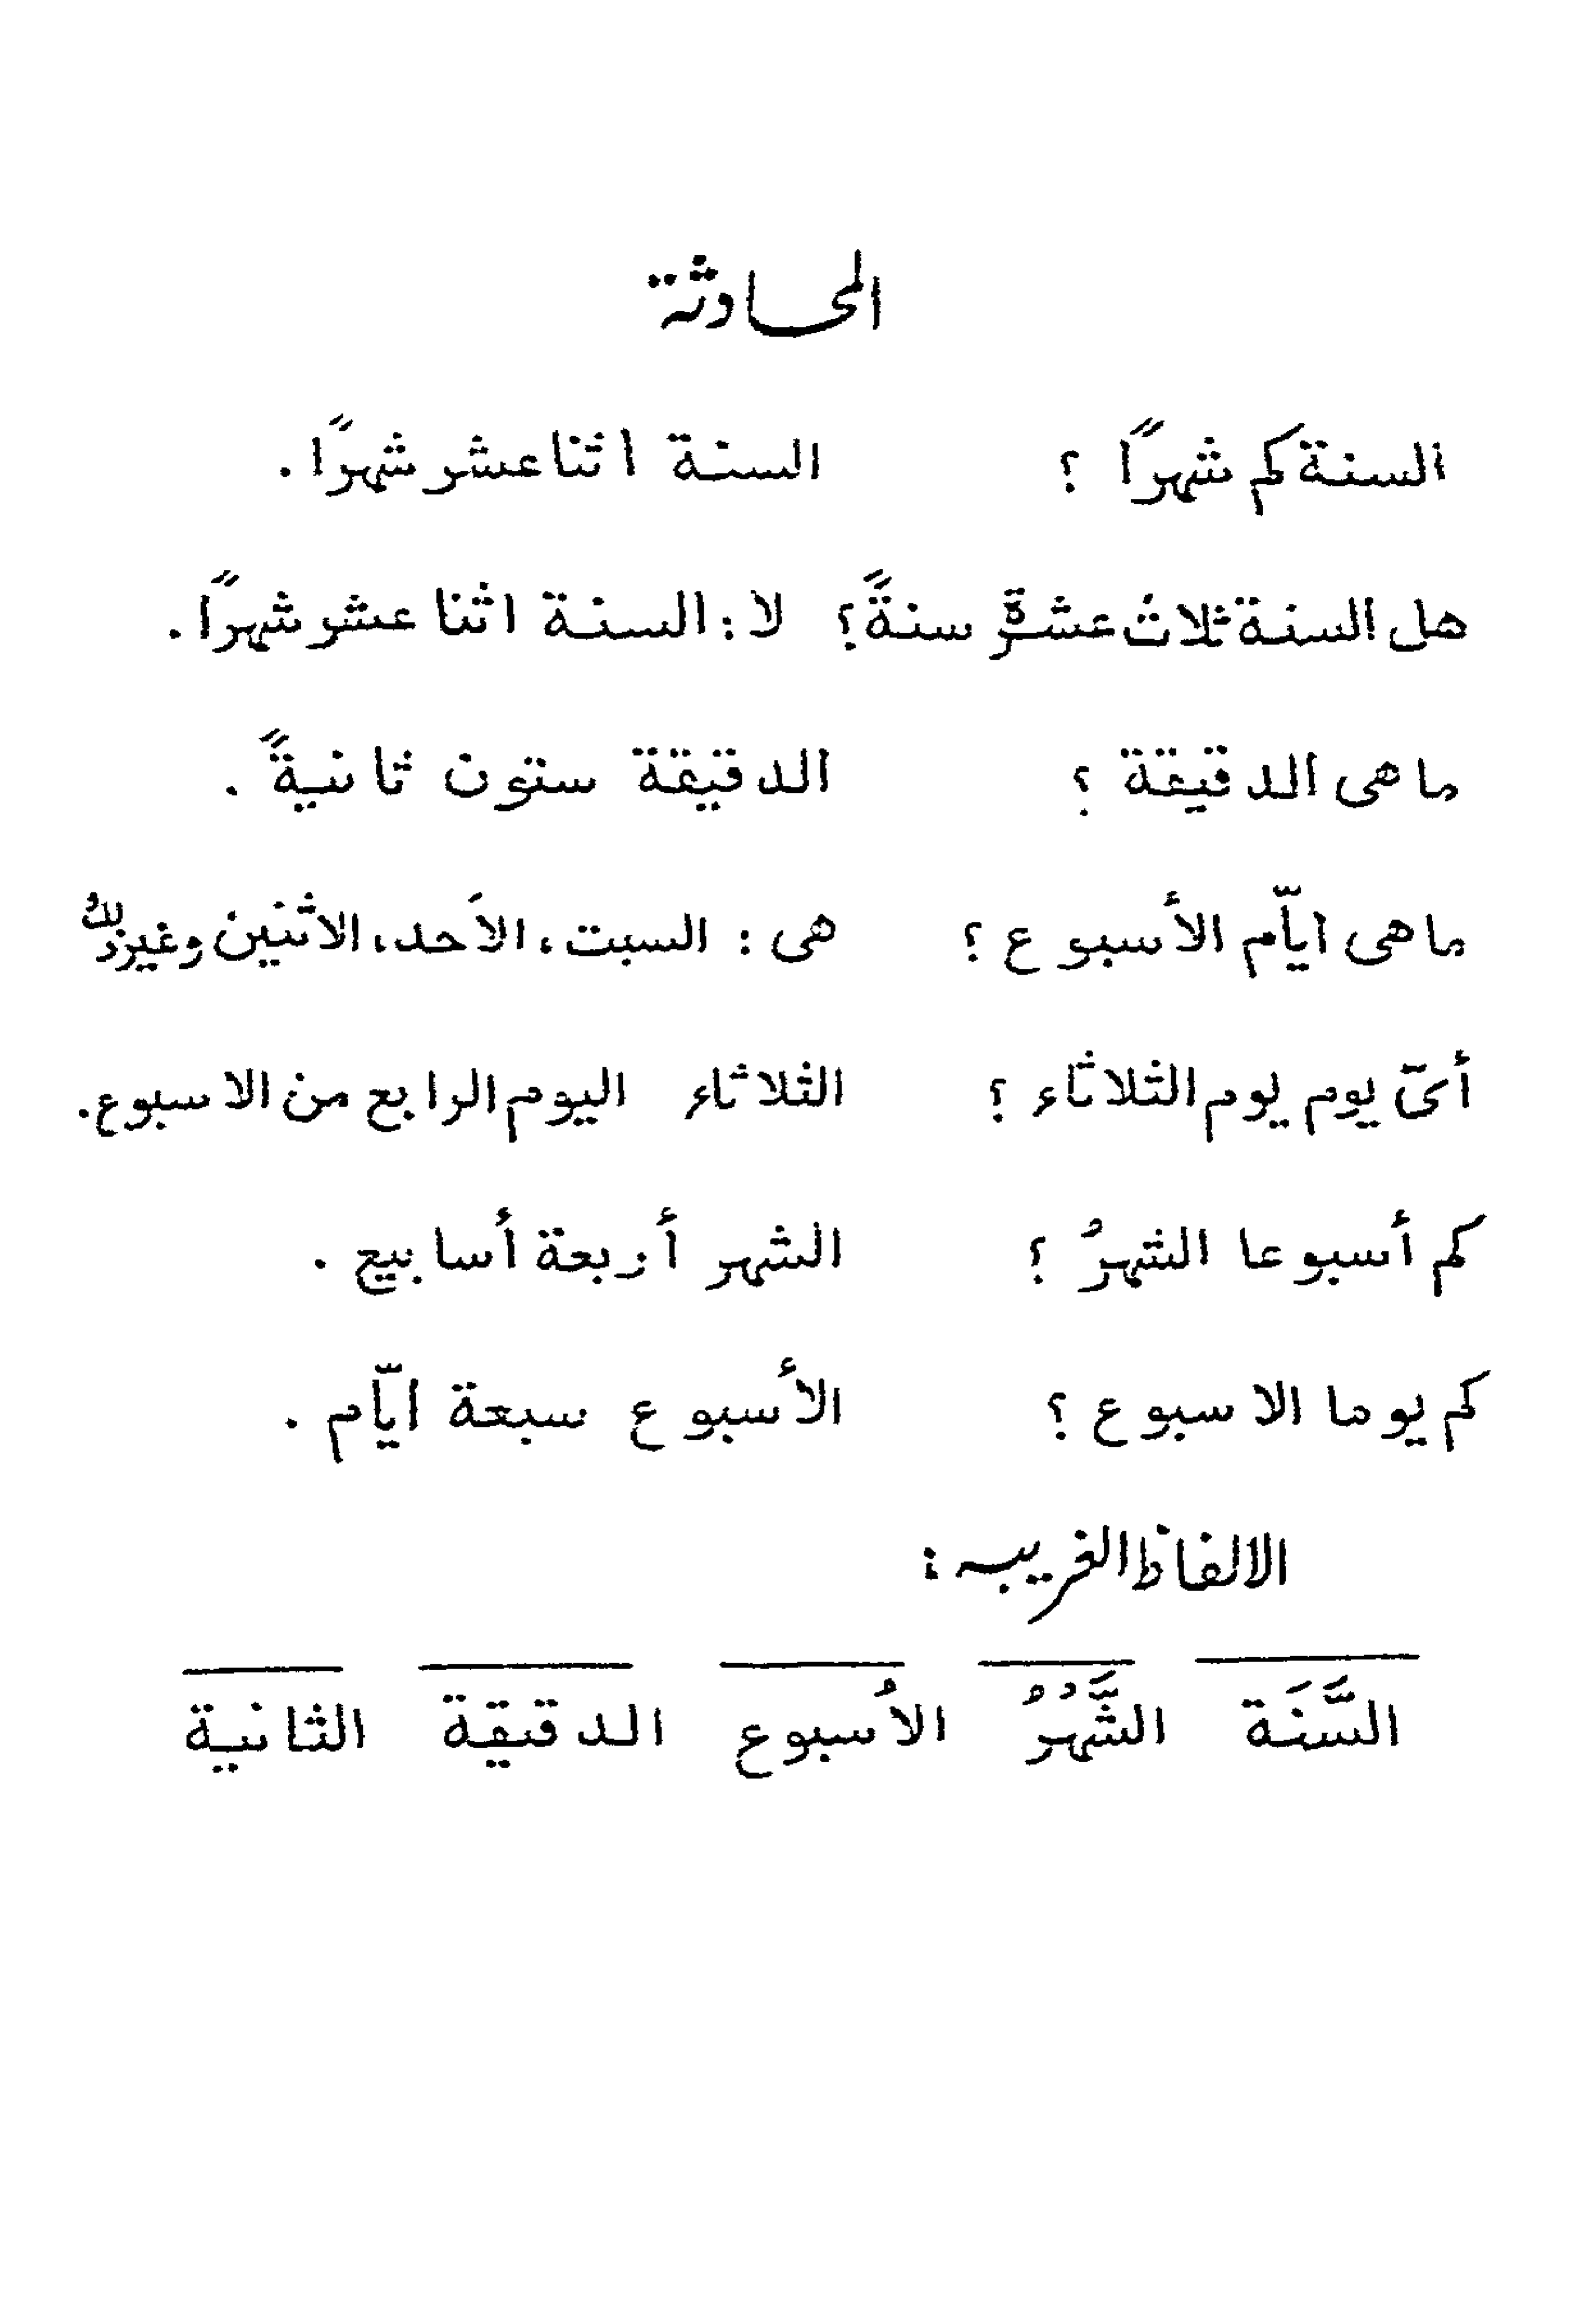 المحادثة
السنة كم شهرًا ؟ السنة اثنا عشر شهرًا .
هل السنة ثلاث عشرة سنةً ؟ لا : السنة اثنا عشر شهرًا .
ما هى الدقيقة ؟ الدقيقة ستون ثانيةً .
ما هى ايّام الأسبوع ؟ هى : السبت ، الاَحد ، الاثنين وغير ذلك
أىّ يوم يوم الثلاثاء ؟ الثلاثاء اليوم الرابع من الاسبوع .
كم أسبوعا الشهرُ ؟ الشهر أربعة أسابيع .
كم يوما الاسبوع ؟ الأسبوع سبعة ايّام .
الالفاظ الغريبه :
السَّنَة الشَّهْرُ الاُسبوع الدقيقة الثانية